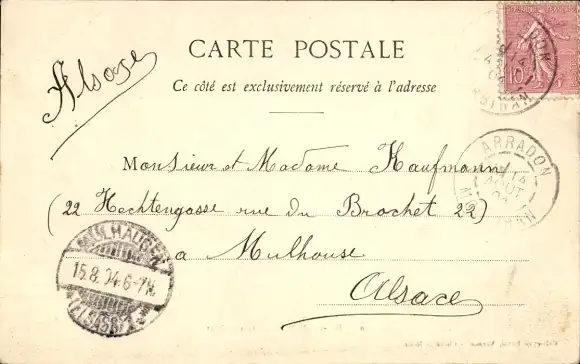 Alsace
CARTE POSTALE
Ce côté est exclusivement réservé à l'adresse
10
ARRADON
14
AOUT
04
MORBIHAN
Monsieur et Madame Kaufmann
(22 Hechtengasse rue du Brochet 22)
a Mulhouse
Alsace
MÜLHAUSEN
15.8.04.6-7N.
(ELSASS)